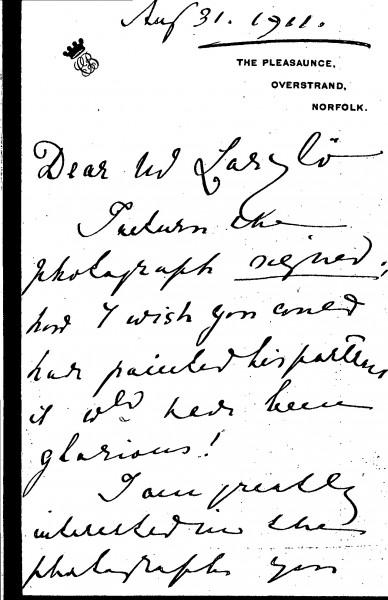 Aug 31. 1911.
THE PLEASAUNCE,
OVERSTRAND,
NORFOLK.
Dear Mr Laszlò
I return the
photograph signed,
how I wish you could
have painted his partner
it wld have been
glorious!
I am greatly
interested in the
photographs you